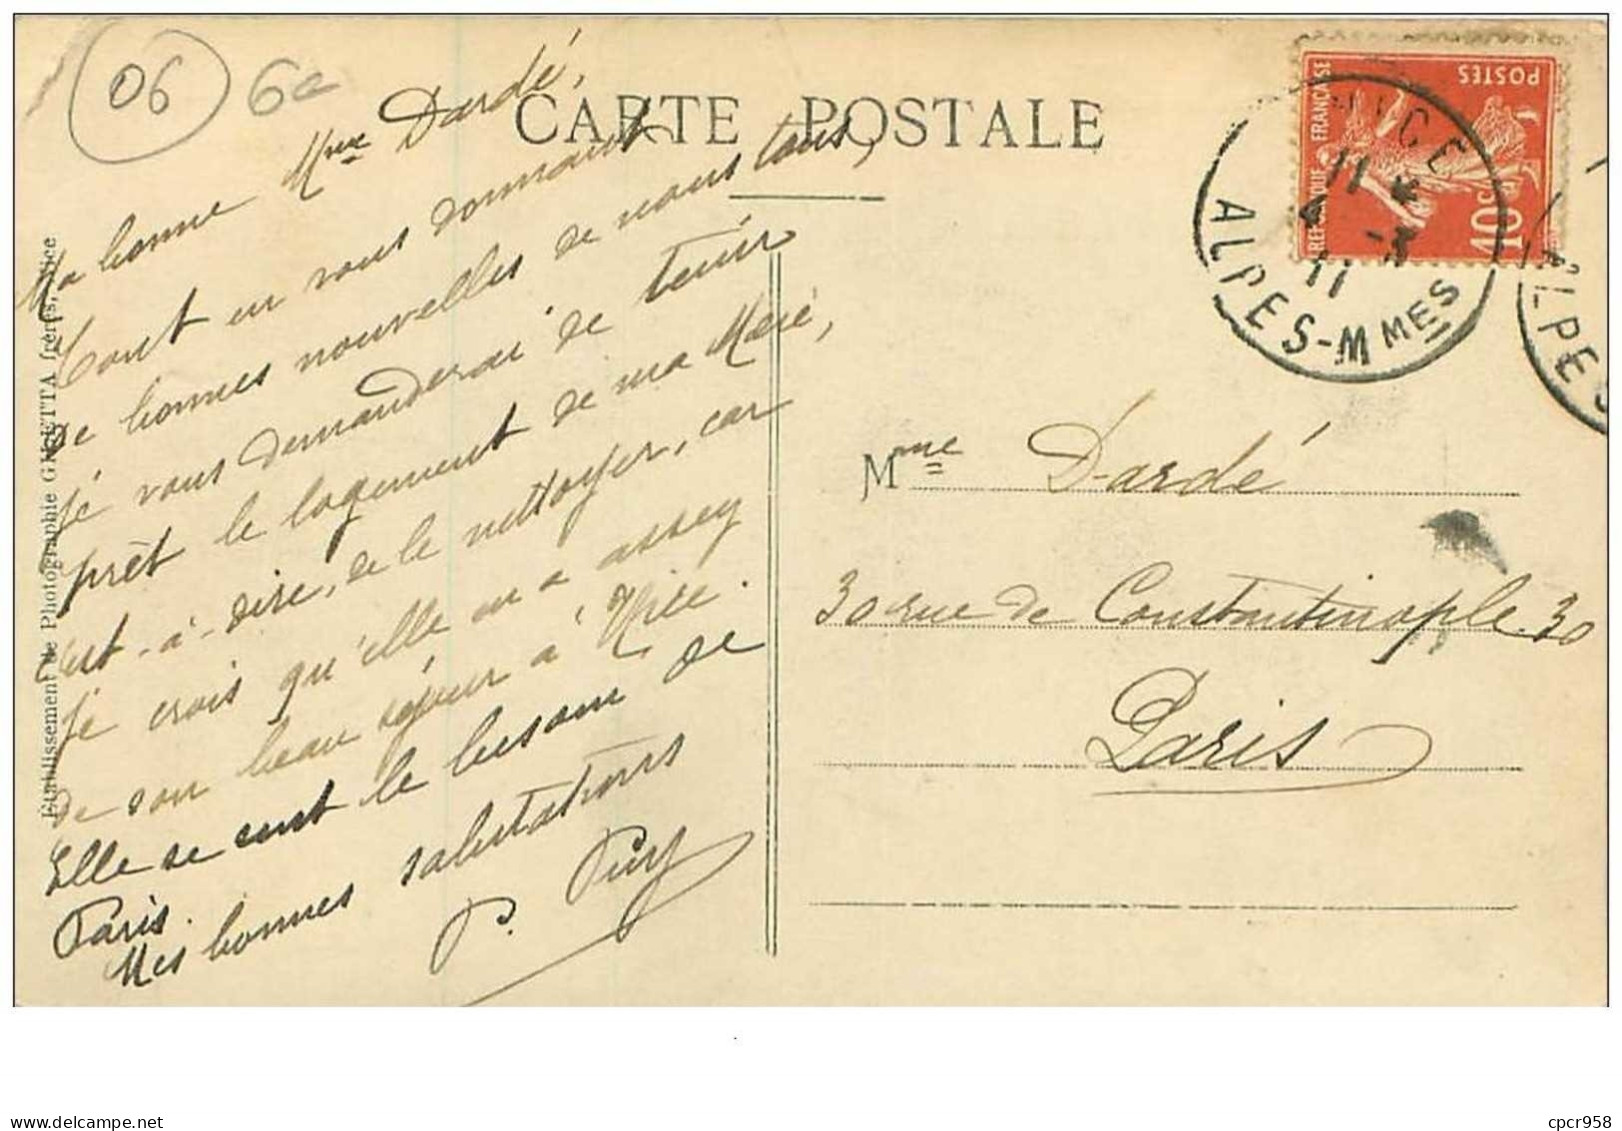 06
6e
CARTE POSTALE
Ma bonne Mme Dardé,
Tout en vous donnant
de bonnes nouvelles de nous tous,
je vous demanderai de tenir
prêt le logement de ma Mère,
c'est-à-dire, de le nettoyer, car
je crois qu'elle en a assez
de son beau séjour à Nice.
Elle se sent le besoin de
Paris.
Mes bonnes salutations
P. Puy
Etablissement de Photographie GILETTA frères, Nice
REPUBLIQUE FRANÇAISE
POSTES
10c
NICE
11
4 -3
11
ALPES-MMES
ALPES
Mme Dardé
30 rue de Constantinople 30
Paris
delcampe.net
cpcr958